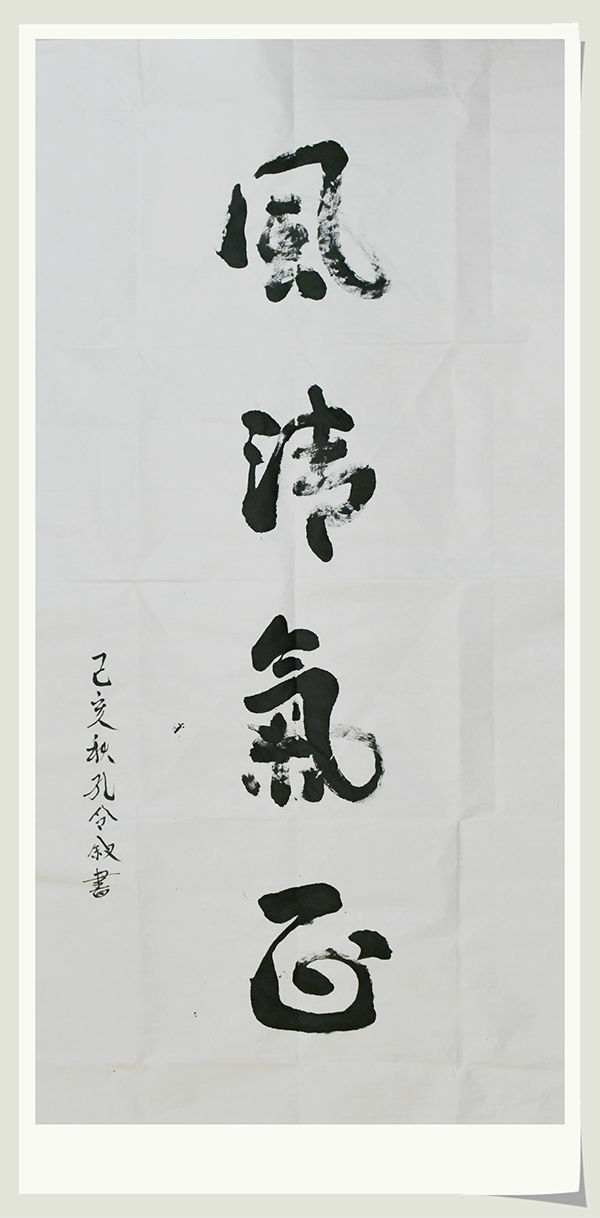 風清氣正
己亥秋孔令叙書